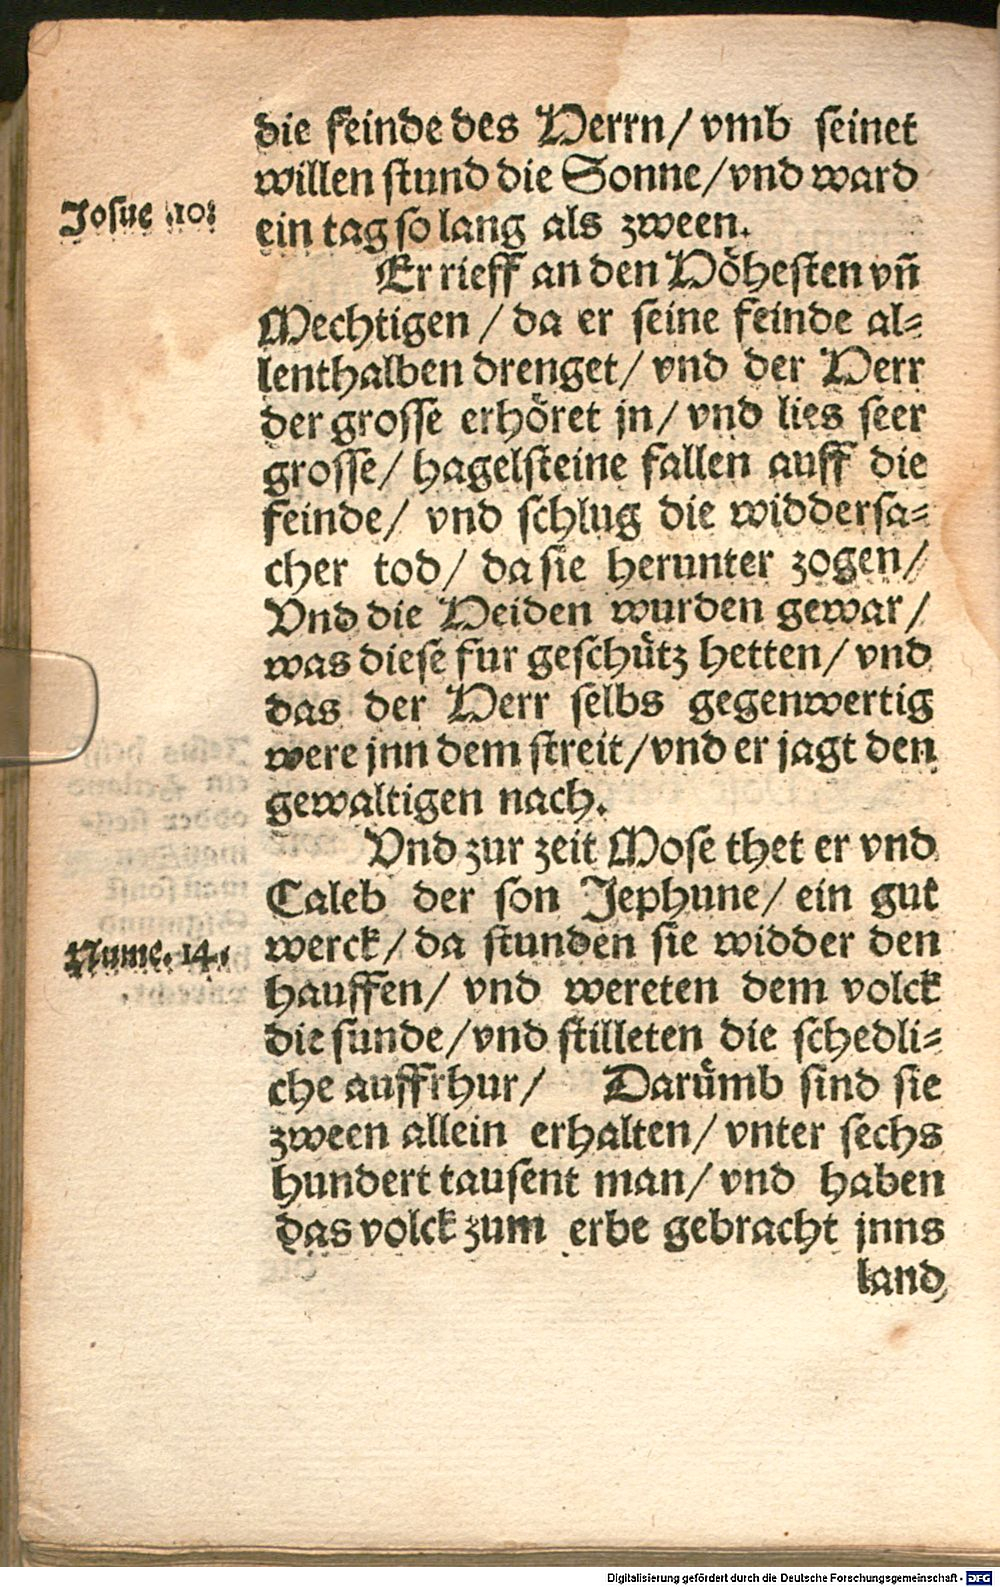 die feinde des Herrn/ vmb seinet
willen stund die Sonne/ vnd ward
Josue .10.
ein tag so lang als zween.
Er rieff an den Höhesten vñ
Mechtigen / da er seine feinde al=
lenthalben drenget/ vnd der Herr
der grosse erhöret jn/ vnd lies seer
grosse/ hagelsteine fallen auff die
feinde/ vnd schlug die widdersa=
cher tod/ da sie herunter zogen/
Vnd die Heiden wurden gewar/
was diese fur geschütz hetten/ vnd
das der Herr selbs gegenwertig
were jnn dem streit/ vnd er jagt den
gewaltigen nach.
Vnd zur zeit Mose thet er vnd
Caleb der son Jephune/ ein gut
Nume. 14.
werck/ da stunden sie widder den
hauffen/ vnd wereten dem volck
die sunde/ vnd stilleten die schedli=
che auffrhur/ Darümb sind sie
zween allein erhalten/ vnter sechs
hundert tausent man/ vnd haben
das volck zum erbe gebracht jnns
land
Digitalisierung gefördert durch die Deutsche Forschungsgemeinschaft - DFG